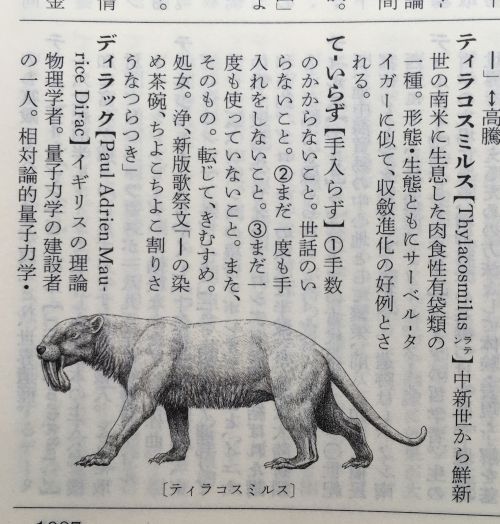 ―」↔高騰
ティラコスミルス【Thylacosmilus ラテン】中新世から鮮新
世の南米に生息した肉食性有袋類の
一種。形態・生態ともにサーベル-タ
イガーに似て、収斂進化の好例とさ
れる。
て-いらず【手入らず】①手数
のかからないこと。世話のい
らないこと。②まだ一度も手
入れをしないこと。③まだ一
度も使っていないこと。また、
そのもの。転じて、きむすめ。
処女。浄、新版歌祭文「―の染
め茶碗、ちよこちよこ割りさ
うなつらつき」
ディラック【Paul Adrien Mau-
rice Dirac】イギリスの理論
物理学者。量子力学の建設者
の一人。相対論的量子力学・
［ティラコスミルス］